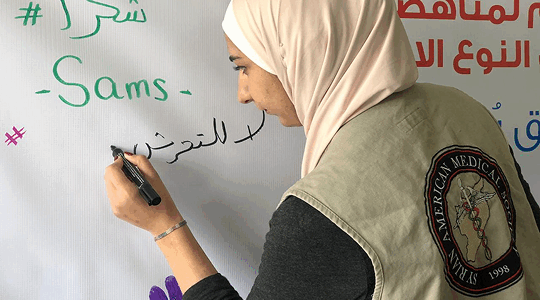 شكرا #
- Sams -
#
لا للتحرش
لمناهض
النوع الا
SYRIAN AMERICAN MEDICAL
1998